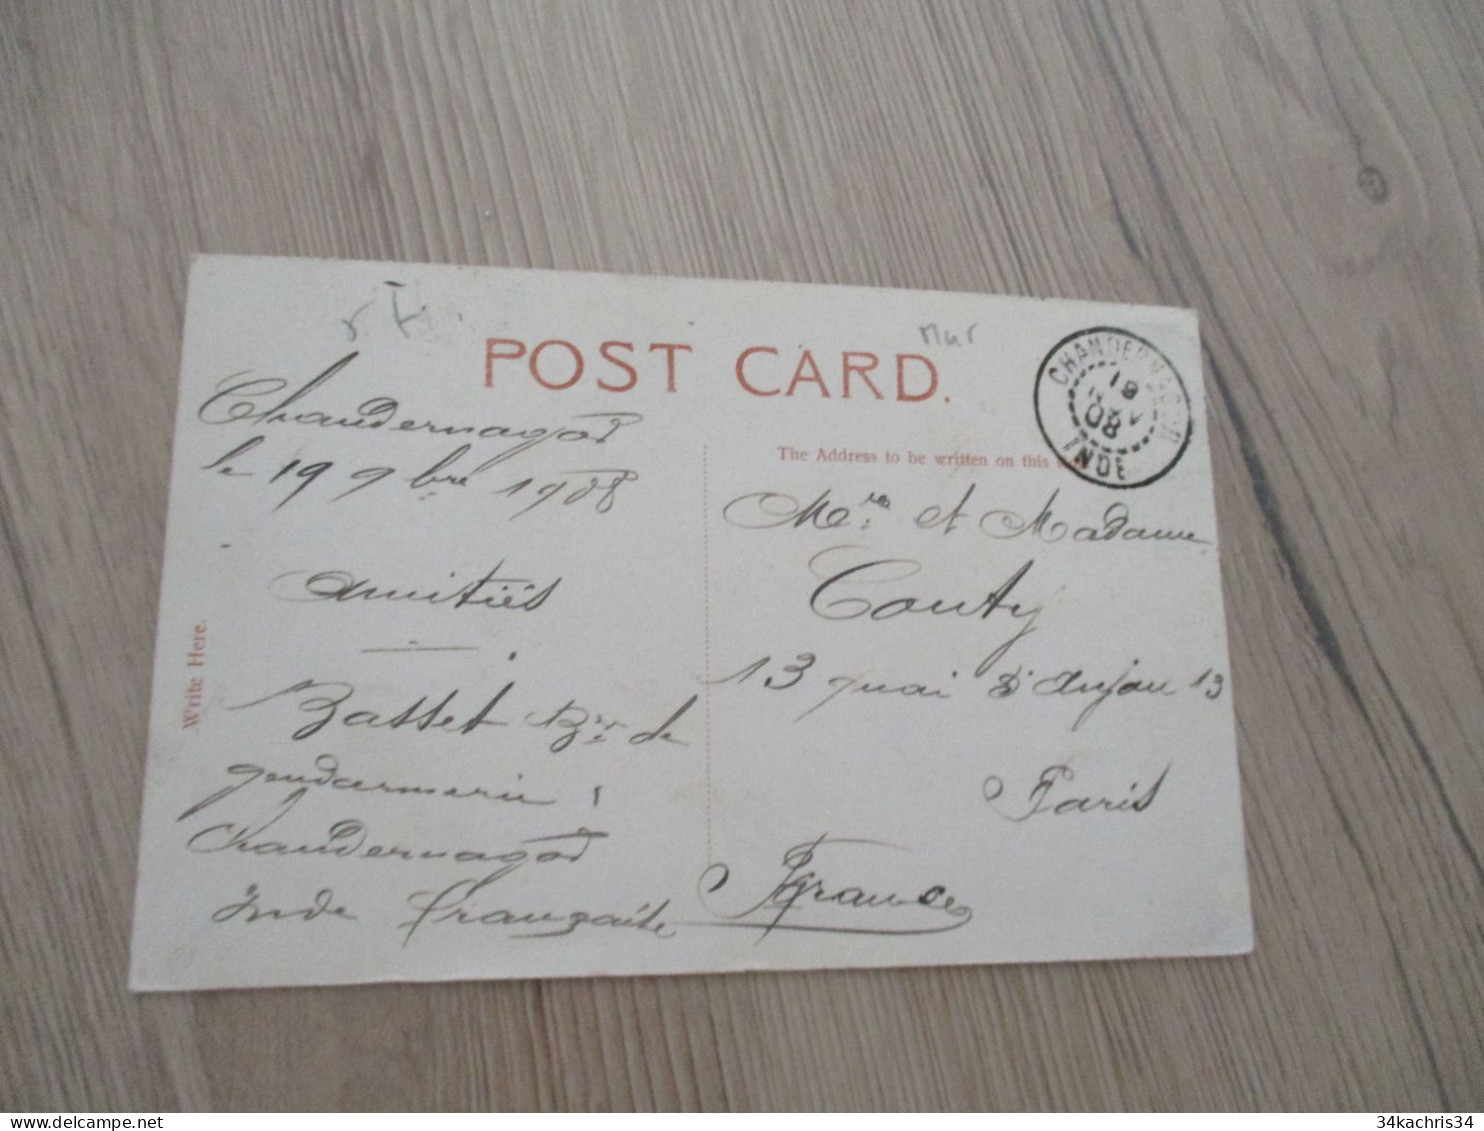 POST CARD.
Mur
CHANDERNAGOR
19
08
INDE
Chandernagor
le 19 9bre 1908
The Address to be written on this
Amitiés
Basset Br. de
gendarmerie
Chandernagor
Inde française
Write Here.
Mr. et Madame
Couty
13 quai d'Anjou 13
Paris
France
34kachris34
delcampe.net
34kachris34